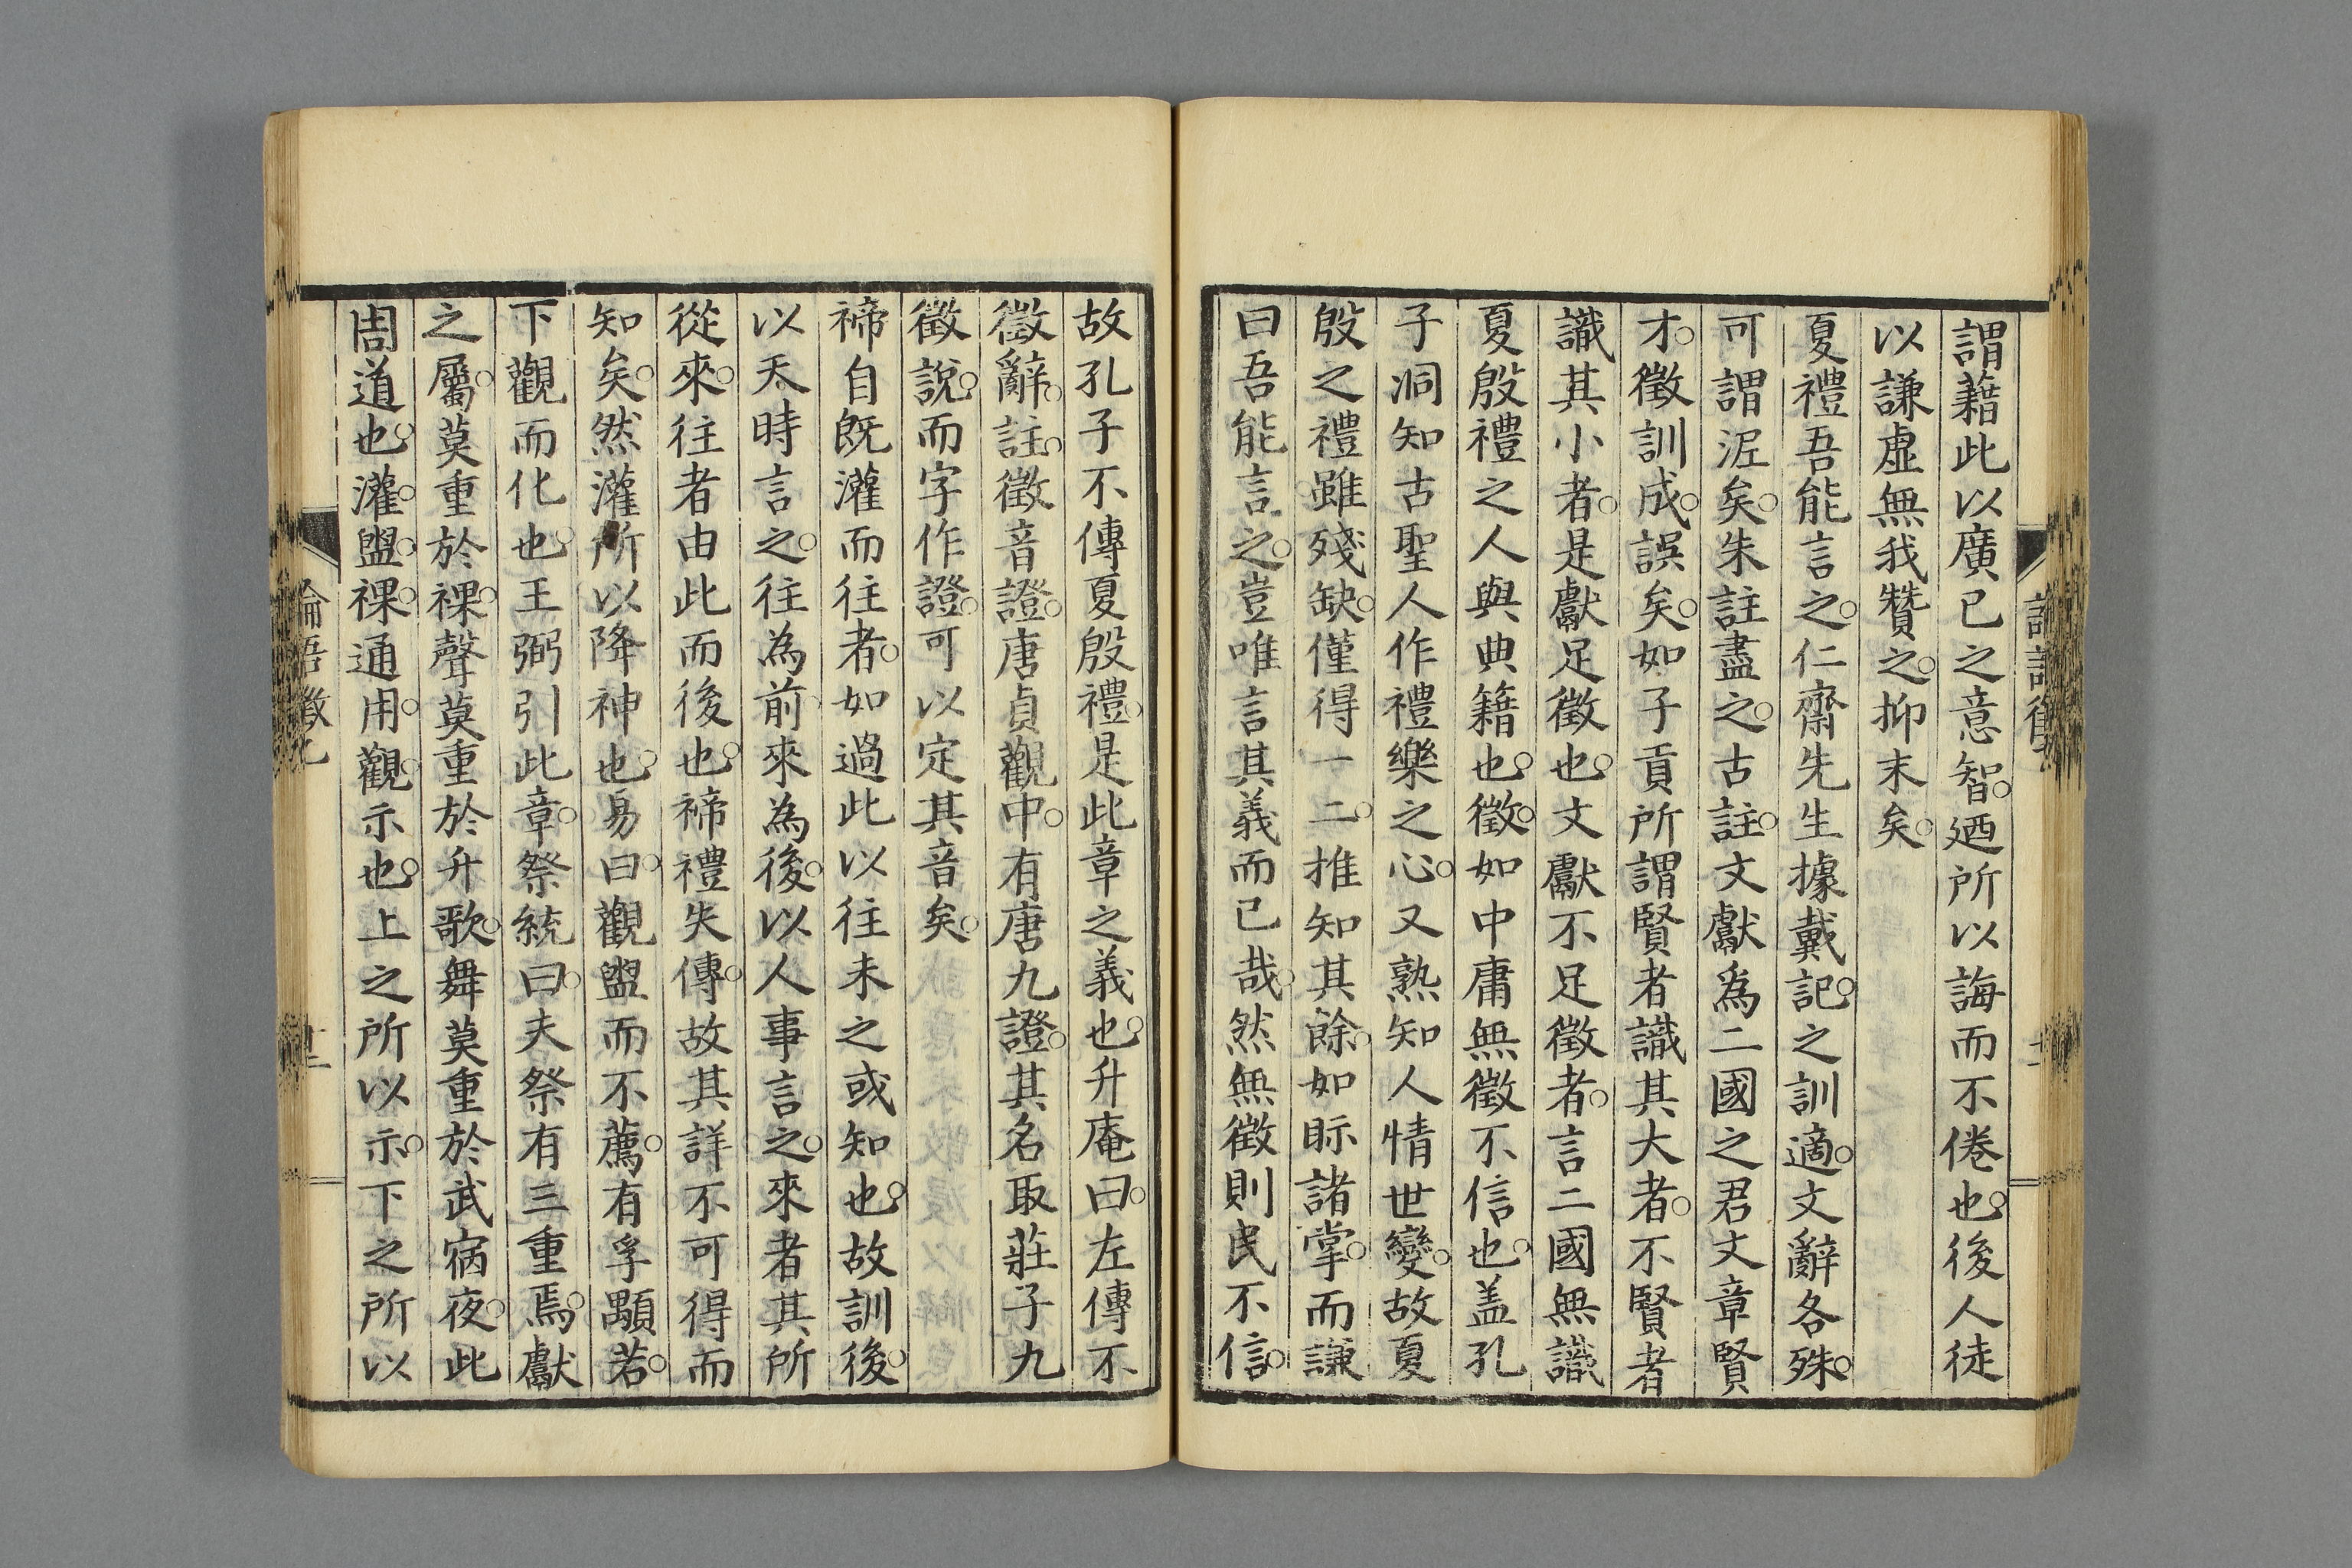 謂藉此以廣己之意智。廼所以誨而不倦也。後人徒
以謙虛無我贊之。抑末矣。
夏禮吾能言之。仁齋先生據戴記。之訓適。文辭各殊。
可謂泥矣。朱註盡之。古註。文獻爲二國之君文章賢
才。徵訓成。誤矣。如子貢所謂賢者識其大者。不賢者
識其小者。是獻足徵也。文獻不足徵者。言二國無識
夏殷禮之人與典籍也。徵。如中庸無徵不信也。盖孔
子洞知古聖人作禮樂之心。又熟知人情世變。故夏
殷之禮雖殘缺。僅得一二。推知其餘。如眎諸掌。而謙
曰吾能言之。豈唯言其義而已哉。然無徵則民不信。
故孔子不傳夏殷禮。是此章之義也。升庵曰。左傳不
徵辭。註。徵音證。唐貞觀中。有唐九證。其名取莊子九
徵說。而字作證。可以定其音矣。
禘自既灌而往者。如過此以往未之或知也。故訓後。
以天時言之。往為前來為後。以人事言之。來者其所
從來。往者由此而後也。禘禮失傳。故其詳不可得而
知矣。然灌所以降神也。易曰。觀盥而不薦。有孚顒若。
下觀而化也。王弼引此章。祭統曰。夫祭有三重焉。獻
之屬。莫重於祼。聲莫重於升歌。舞莫重於武宿夜。此
周道也。灌。盥。祼。通用。觀。示也。上之所以示。下之所以
論語徵